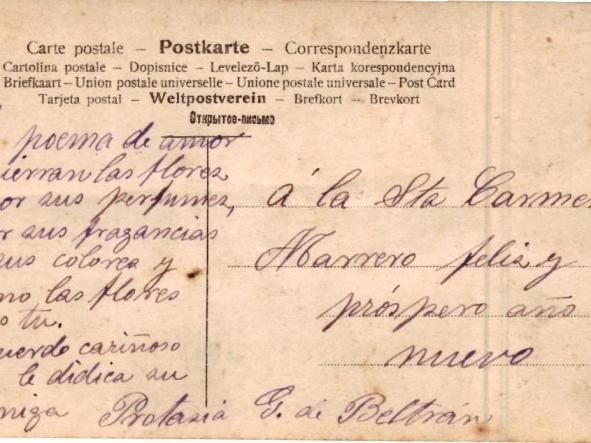 Carte postale – Postkarte – Correspondenzkarte
Cartolina postale – Dopisnice – Levelező-Lap – Karta korespondencyjna
Briefkaart – Union postale universelle – Unione postale universale – Post Card
Tarjeta postal – Weltpostverein – Brefkort – Brevkort
Открытое-письмо
poema de amor
ierran las flores
or sus perfumes,
r sus fragancias
sus colores y
mo las flores
s tu.
uerdo cariñoso
le didica su
miga Protasia G. de Beltrán
á la Sta Carme
Marrero feliz y
próspero año
nuevo